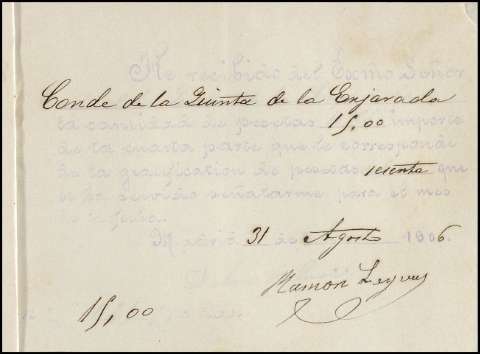 He recibido del Exmo Señor
Conde de la Quinta de la Enjarada
la cantidad de pesetas 15,00 importe
de la cuarta parte que le corresponde
de la gratificación de pesetas sesenta que
se ha servido señalarme para el mes
de la fecha.
Madrid 31 de Agosto 1906.
Ramon
15,00